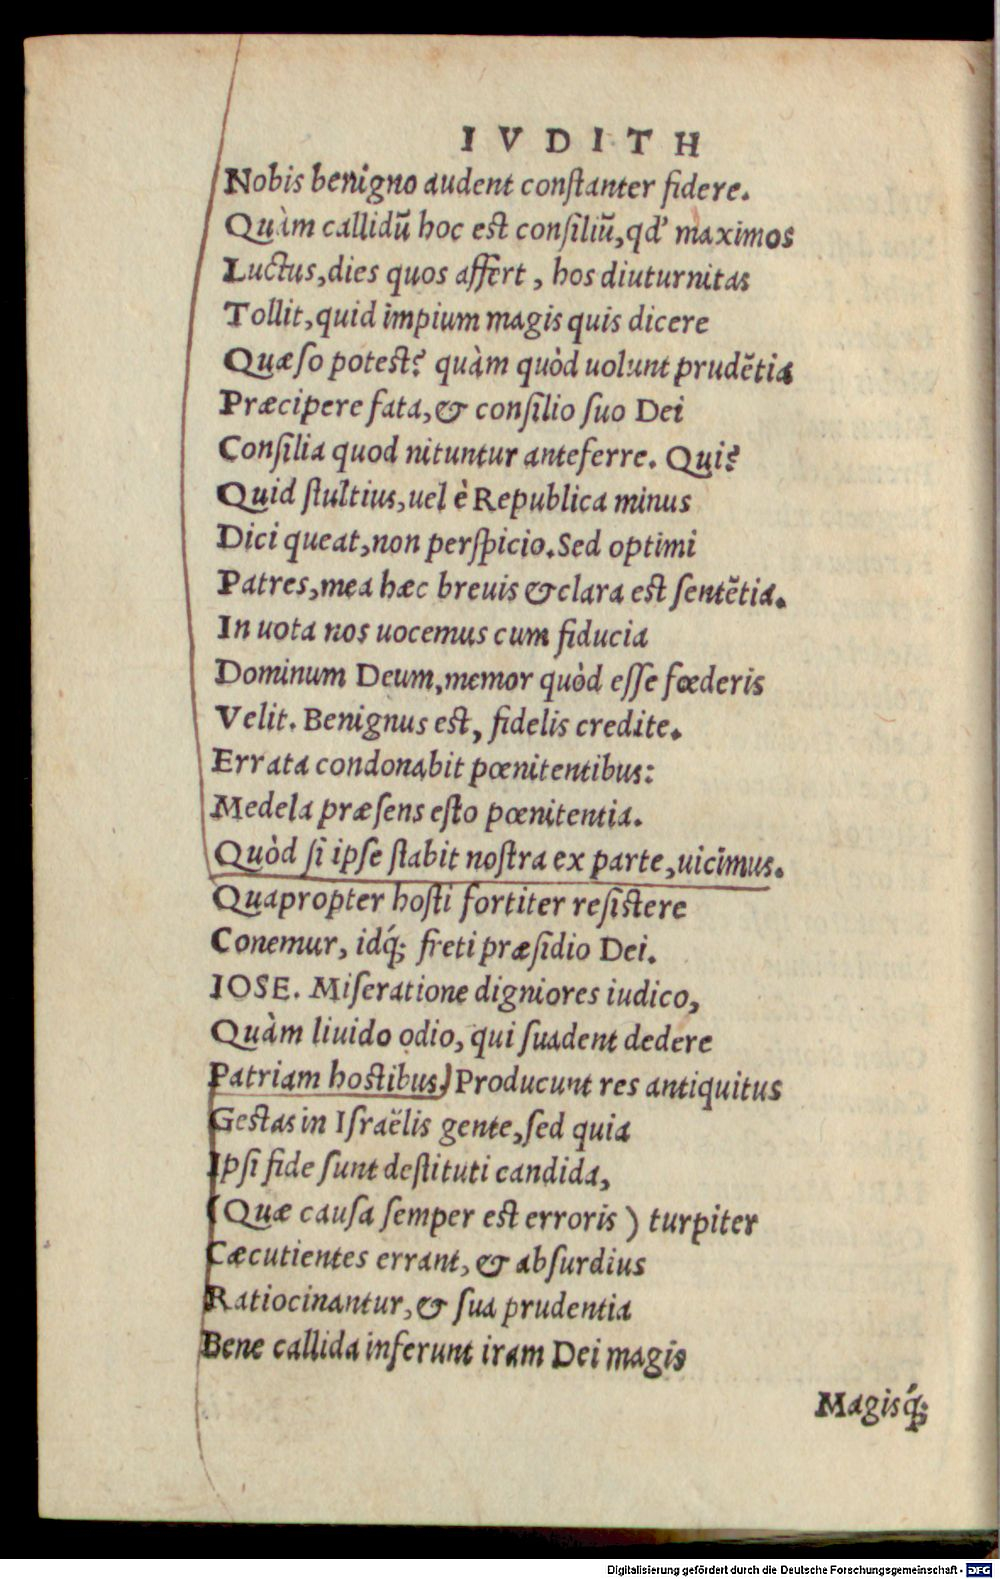 IVDITH
Nobis benigno audent conſtanter fidere.
Quàm callidũ hoc eſt conſiliũ, qd' maximos
Luctus, dies quos affert, hos diuturnitas
Tollit, quid impium magis quis dicere
Quæſo poteſt? quàm quòd uolunt prudẽtia
Præcipere fata, & conſilio ſuo Dei
Conſilia quod nituntur anteferre. Qui?
Quid ſtultius, uel è Republica minus
Dici queat, non perſpicio. Sed optimi
Patres, mea hæc breuis & clara eſt ſentẽtia.
In uota nos uocemus cum fiducia
Dominum Deum, memor quòd eſſe fœderis
Velit. Benignus eſt, fidelis credite.
Errata condonabit pœnitentibus:
Medela præſens eſto pœnitentia.
Quòd ſi ipſe ſtabit noſtra ex parte, uicimus.
Quapropter hoſti fortiter reſiſtere
Conemur, idq́; freti præſidio Dei.
IOSE. Miſeratione digniores iudico,
Quàm liuido odio, qui ſuadent dedere
Patriam hoſtibus. Producunt res antiquitus
Geſtas in Iſraëlis gente, ſed quia
Ipſi fide ſunt deſtituti candida,
(Quæ cauſa ſemper eſt erroris) turpiter
Cæcutientes errant, & abſurdius
Ratiocinantur, & ſua prudentia
Bene callida inferunt iram Dei magis
Magisq́;
Digitalisierung gefördert durch die Deutsche Forschungsgemeinschaft - DFG